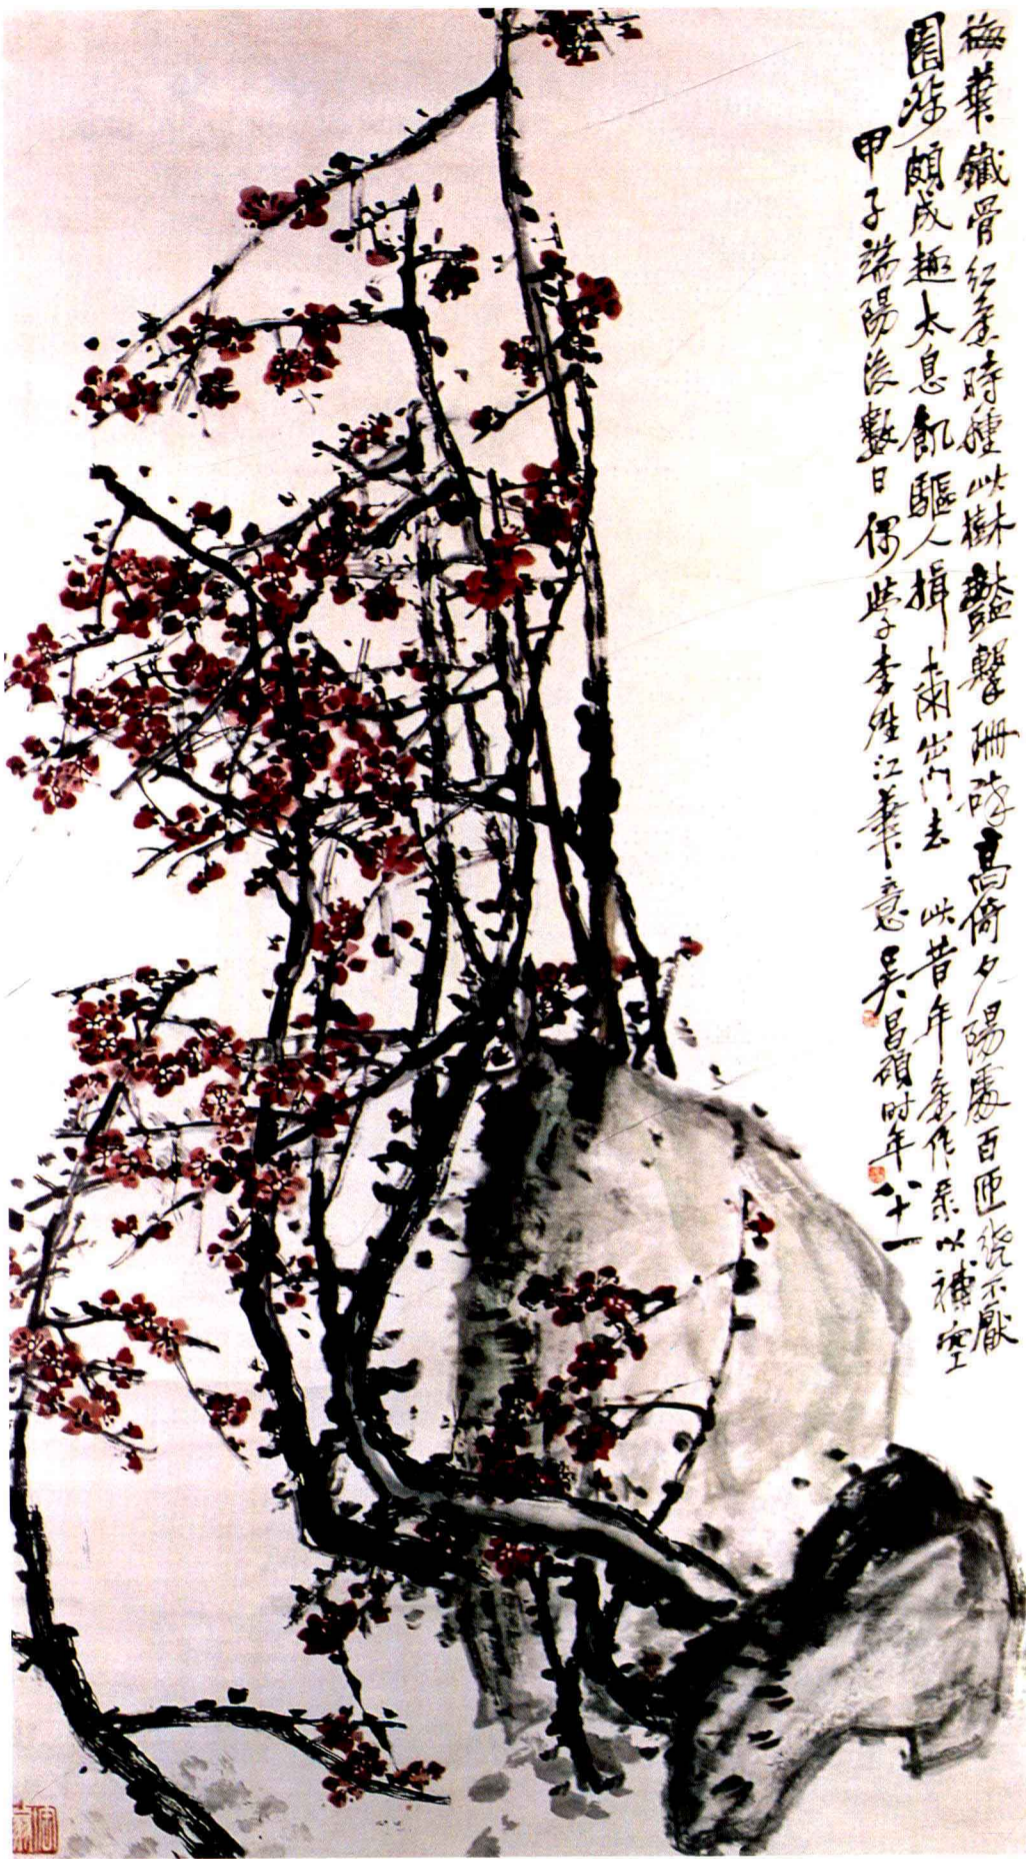 梅華鐵骨紅舊時種此樹豔擊珊碎高倚夕陽處百匝繞不厭
園涉頗成趣太息飢驅人揖爾出門去 此昔年舊作錄以補空
甲子端陽後數日偶學李 江華意 吳昌碩時年八十一